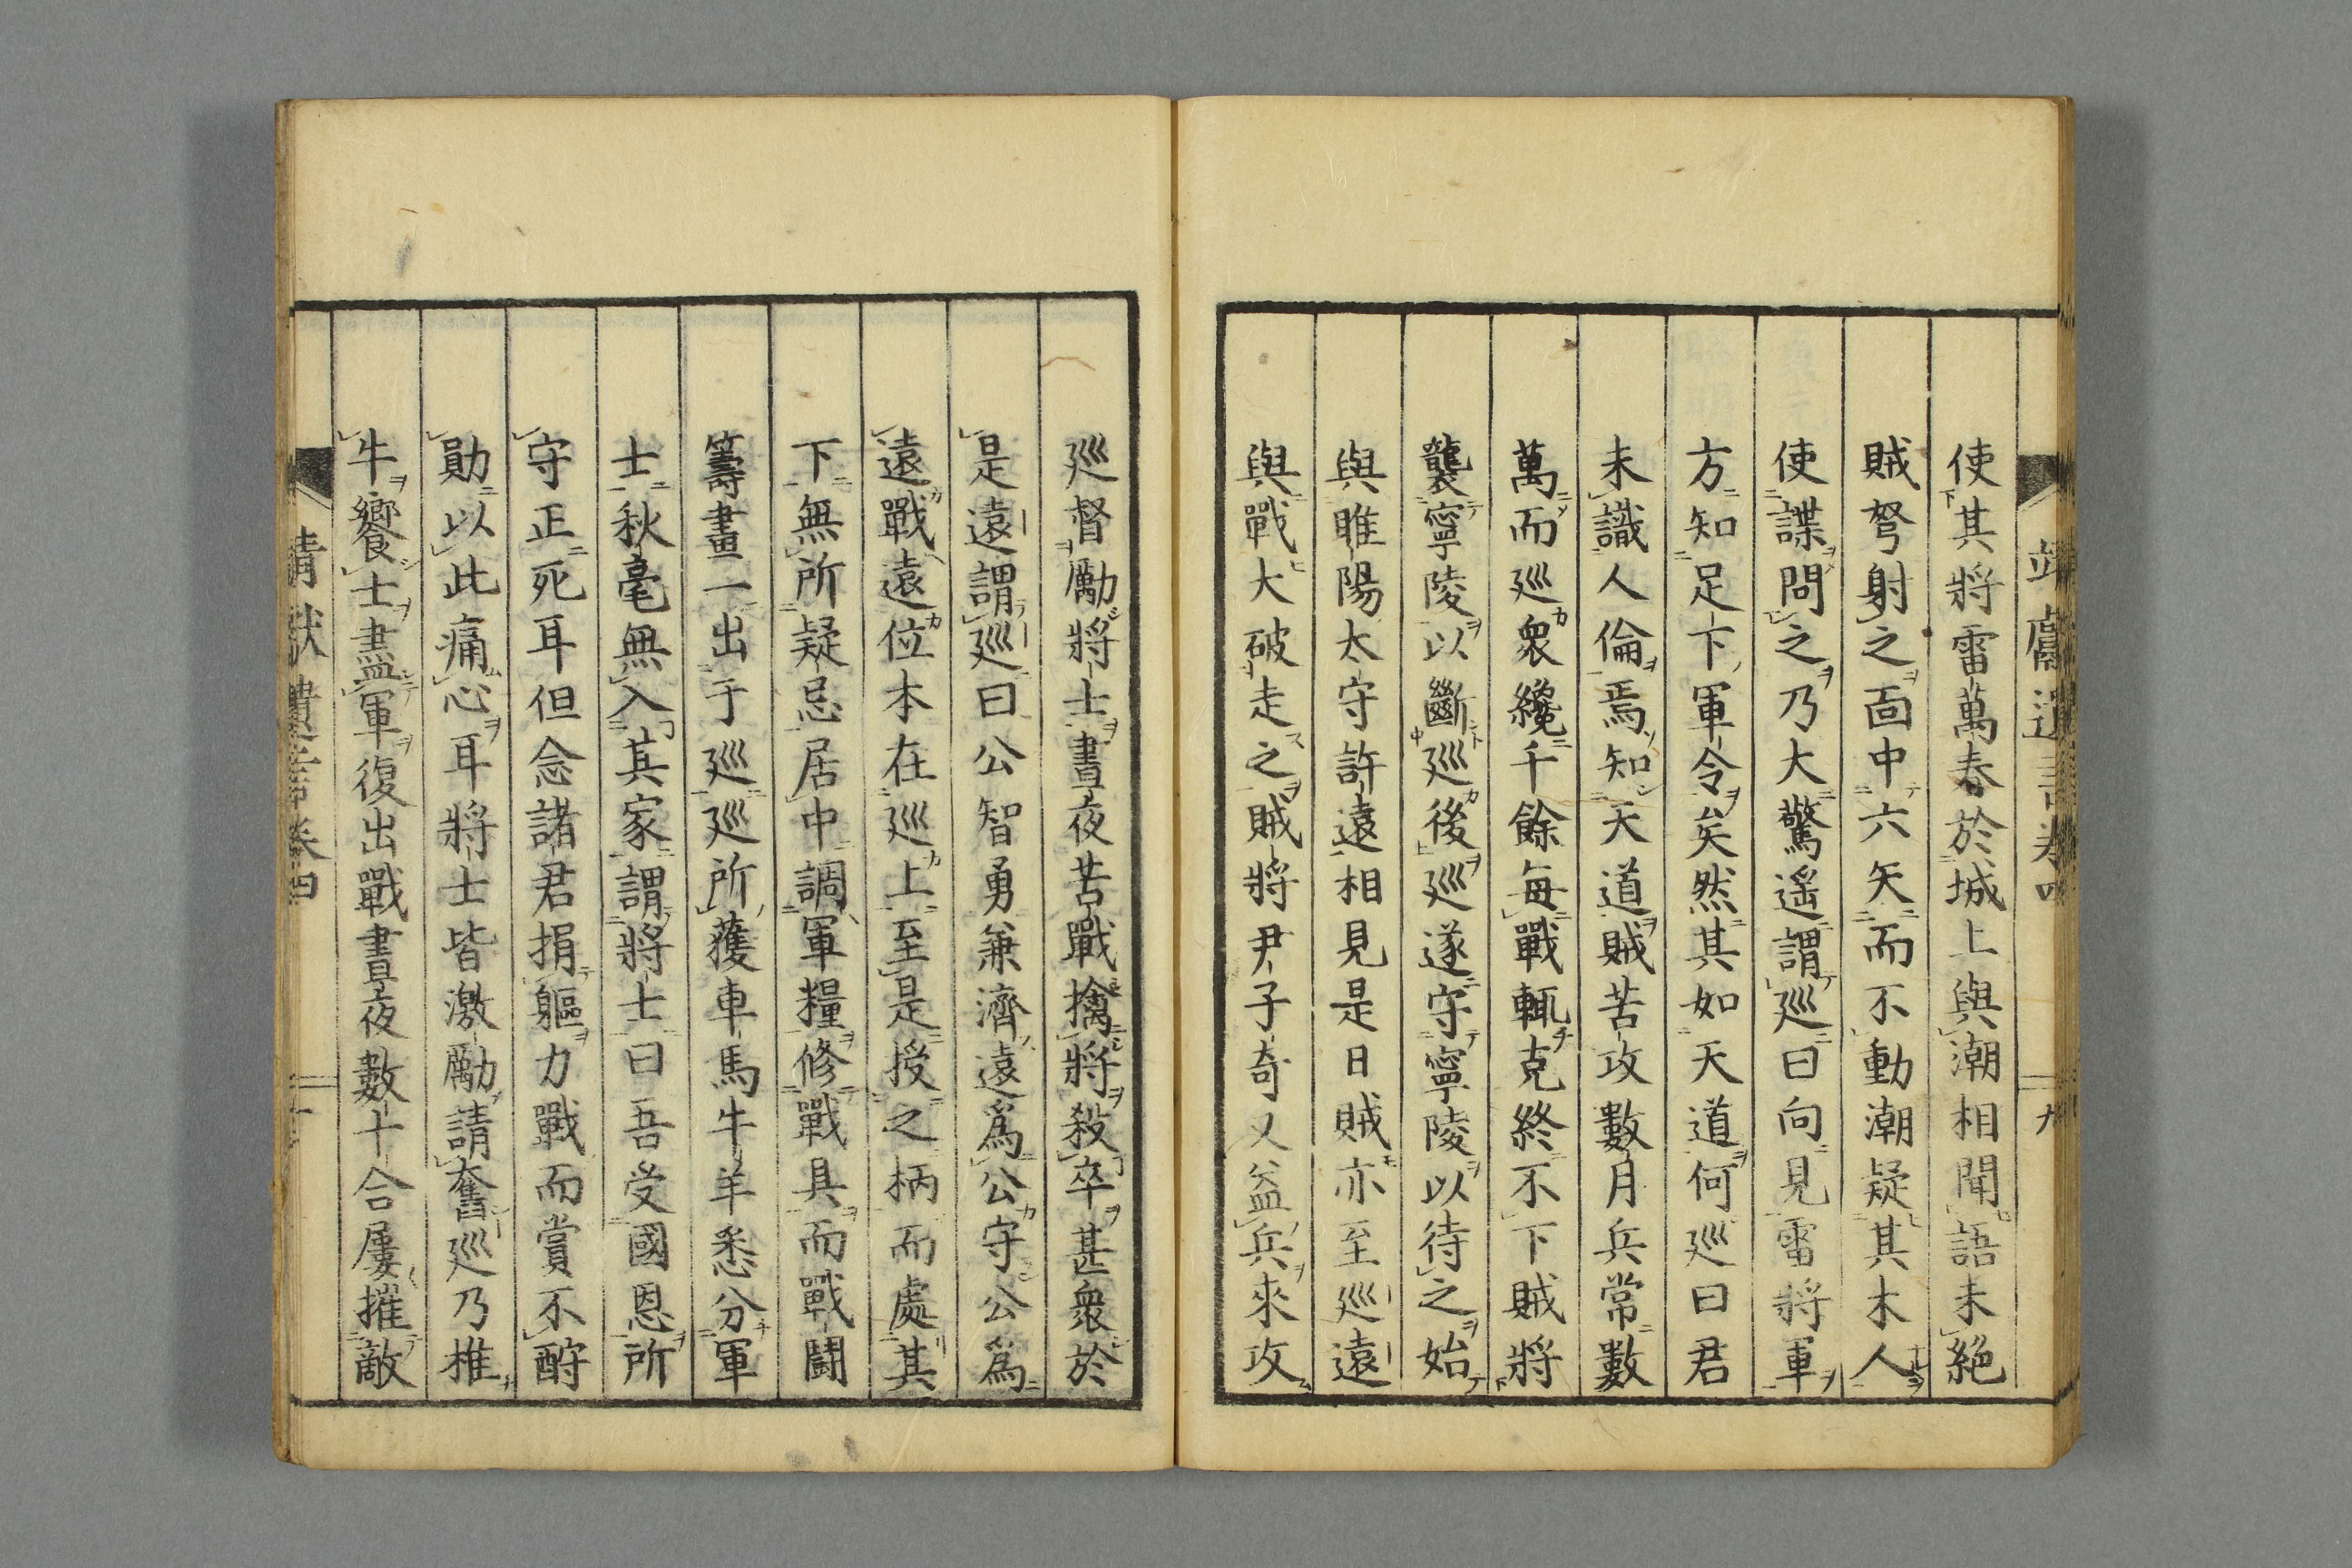 使其將雷萬春於城上與潮相聞語未絕
賊弩射之面中六矢而不動潮疑其木人
使諜問之乃大驚遥謂巡曰向見雷將軍
方知足下軍令矣然其如天道何巡曰君
未識人倫焉知天道賊苦攻數月兵常數
萬而巡衆纔千餘每戰輒克終不下賊將
襲寧陵以斷巡後巡遂守寧陵以待之始
與睢陽太守許遠相見是日賊亦至巡遠
與戰大破走之賊將尹子奇又益兵來攻
巡督勵將士晝夜苦戰擒將殺卒甚衆於
是遠謂巡曰公智勇兼濟遠爲公守公爲
遠戰遠位本在巡上至是授之柄而處其
下無所疑忌居中調軍糧修戰具而戰鬪
籌畫一出于巡巡所獲車馬牛羊悉分軍
士秋毫無入其家謂將士曰吾受國恩所
守正死耳但念諸君捐軀力戰而賞不酧
勛以此痛心耳將士皆激勵請奮巡乃椎
牛饗士盡軍復出戰晝夜數十合屢摧敵
靖獻遺書卷四